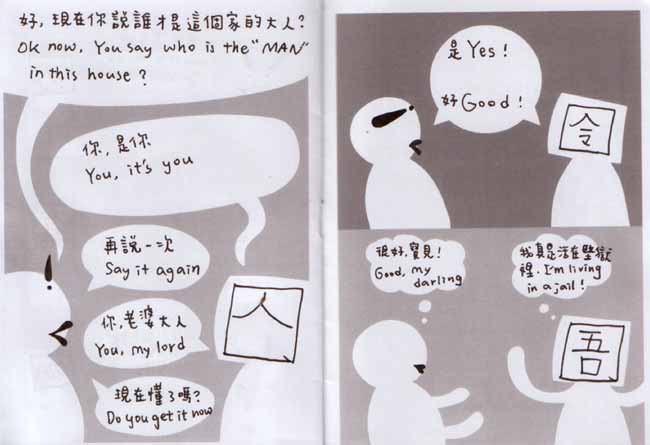 好,現在你說誰才是這個家的大人?
OK now, You say who is the "MAN"
in this house?
你,是你
You, it's you
再說一次
Say it again
你,老婆大人
You, my lord
現在懂了嗎?
Do you get it now
囚
是Yes!
好Good!
囹
很好,寶貝!
Good, my
darling
我真是活在監獄
裡. I'm living
in a jail!
圄